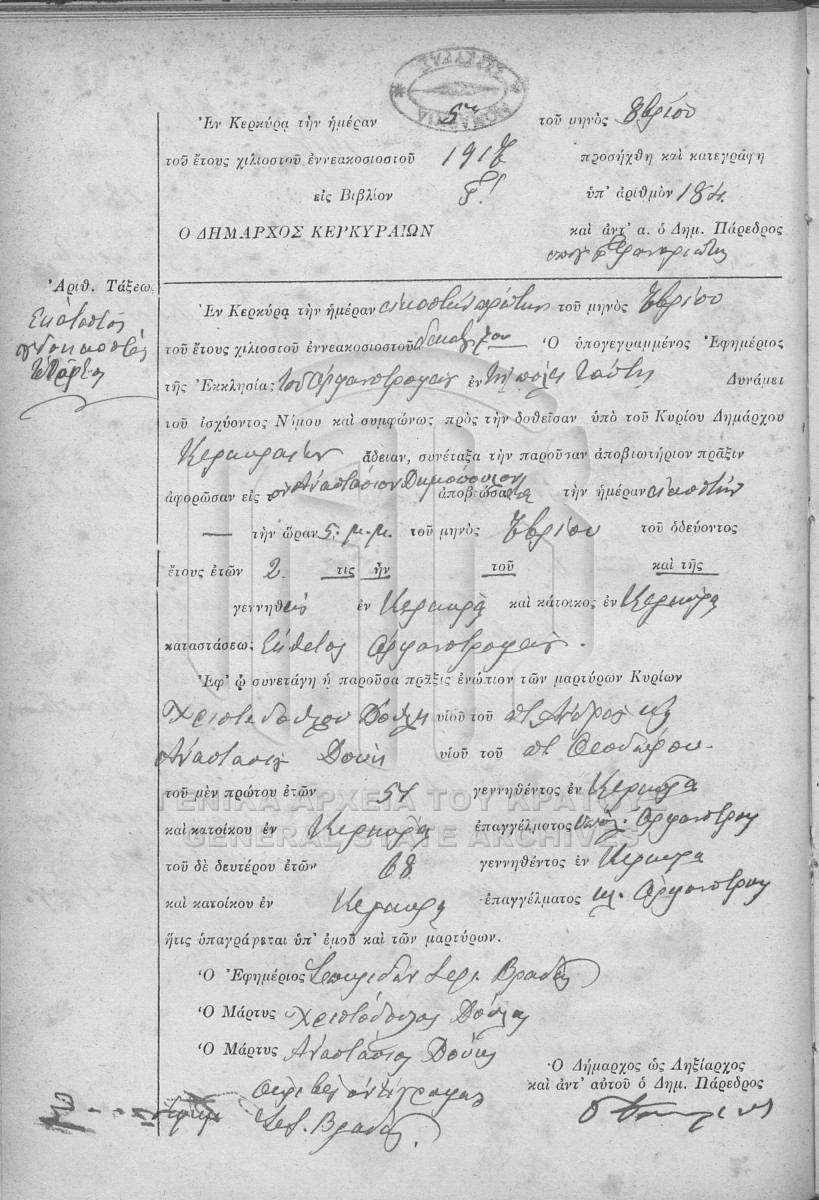 ΝΟΜΑΡΧΙΑ ΚΕΡΚΥΡΑΣ
Ἐν Κερκύρᾳ τὴν ἡμέραν 5ην τοῦ μηνὸς 8βρίου
τοῦ ἔτους χιλιοστοῦ ἐννεακοσιοστοῦ 1917 προσήχθη καὶ κατεγράφη
εἰς Βιβλίον ὑπ' ἀριθμὸν 184
Ο ΔΗΜΑΡΧΟΣ ΚΕΡΚΥΡΑΙΩΝ καὶ ἀντ' α. ὁ Δημ. Πάρεδρος
Ἀριθ. Τάξεως
Ἑκατοστὸς
ὀγδοηκοστὸς
τέταρτος
Ἐν Κερκύρᾳ τὴν ἡμέραν εἰκοστὴν πρώτην τοῦ μηνὸς 7βρίου
τοῦ ἔτους χιλιοστοῦ ἐννεακοσιοστοῦ Ὁ ὑπογεγραμμένος Ἐφημέριος
τῆς Ἐκκλησίας τοῦ Ὀρφανοτροφείου ἐν τῇ πόλει ταύτῃ Δυνάμει
τοῦ ἰσχύοντος Νόμου καὶ συμφώνως πρὸς τὴν δοθεῖσαν ὑπὸ τοῦ Κυρίου Δημάρχου
Κερκυραίων ἄδειαν, συνέταξα τὴν παροῦσαν ἀποβιωτήριον πρᾶξιν
ἀφορῶσαν εἰς τὸν Ἀναστάσιον Δημόπουλον ἀποβιώσαντα τὴν ἡμέραν εἰκοστὴν
— τὴν ὥραν 5 μ.μ. τοῦ μηνὸς 7βρίου τοῦ ὁδεύοντος
ἔτους ἐτῶν 2 τις ἦν τοῦ καὶ τῆς
γεννηθεὶς ἐν Κερκύρᾳ καὶ κάτοικος ἐν Κερκύρᾳ
καταστάσεως Ἔκθετος Ὀρφανοτροφείου.
Ἐφ' ᾧ συνετάγη ἡ παροῦσα πρᾶξις ἐνώπιον τῶν μαρτύρων Κυρίων
Χριστοδούλου Δούλη υἱοῦ τοῦ ποτ. Ἀνδρέα κ
Ἀναστασίου Δούκη υἱοῦ τοῦ ποτ. Θεοδώρου.
τοῦ μὲν πρώτου ἐτῶν 54 γεννηθέντος ἐν Κερκύρᾳ
καὶ κατοίκου ἐν Κερκύρᾳ ἐπαγγέλματος Ὀρφανοτροφ
τοῦ δὲ δευτέρου ἐτῶν 68 γεννηθέντος ἐν Κερκύρᾳ
καὶ κατοίκου ἐν Κερκύρᾳ ἐπαγγέλματος Ὀρφανοτροφ
ἥτις ὑπογράφεται ὑπ' ἐμοῦ καὶ τῶν μαρτύρων.
Ὁ Ἐφημέριος Σπυρίδων
Ὁ Μάρτυς Χριστόδουλος Δούλης
Ὁ Μάρτυς Ἀναστάσιος Δούκης
Ὁ Δήμαρχος ὡς Ληξίαρχος
καὶ ἀντ' αὐτοῦ ὁ Δημ. Πάρεδρος
ΓΕΝΙΚΑ ΑΡΧΕΙΑ ΤΟΥ ΚΡΑΤΟΥΣ
GENERAL STATE ARCHIVES